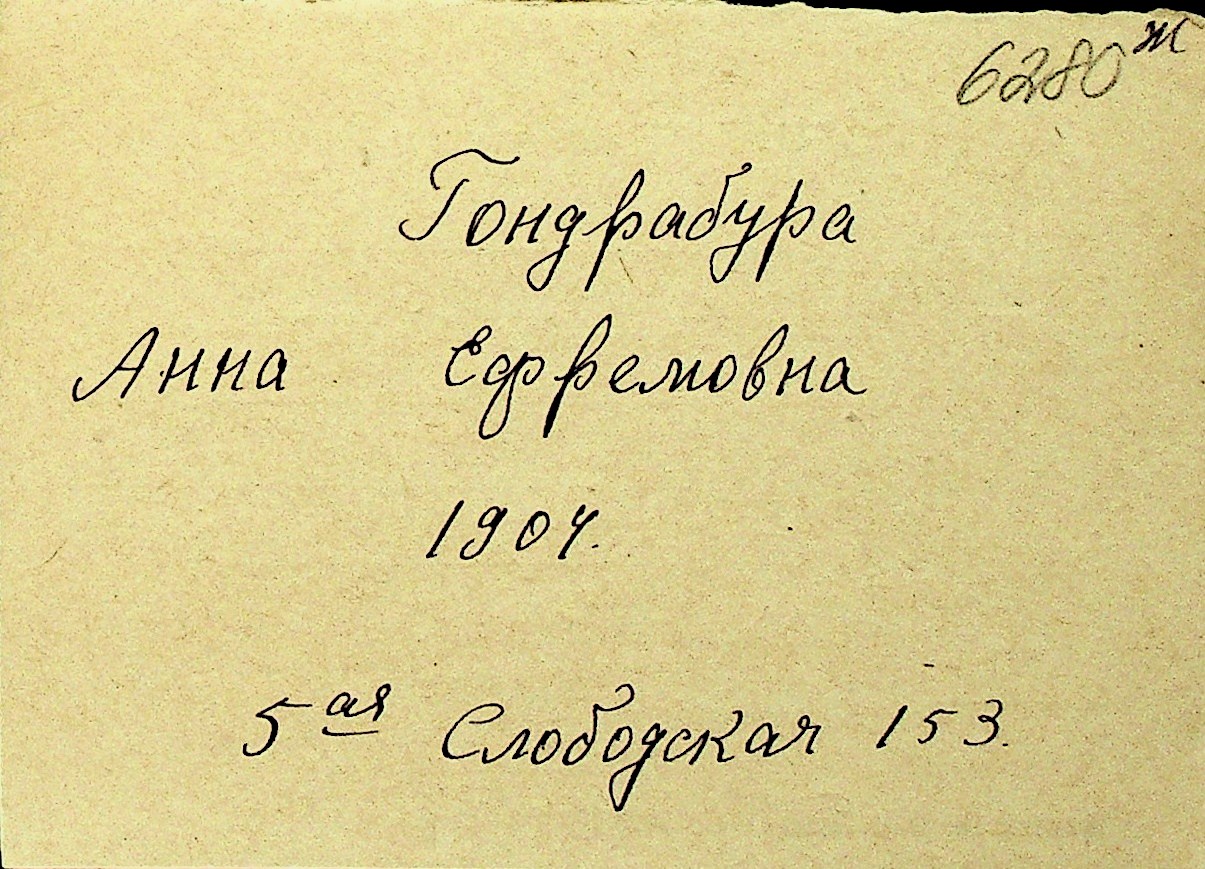 6280 ж
Гондрабура
Анна Ефремовна
1904.
5ая Слободская 153.